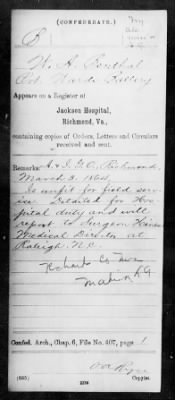 (CONFEDERATE.)
B
W. A. Benthal
Pvt. Wards Battery
Appears on a Register at
Jackson Hospital,
Richmond, Va.,
containing copies of Orders, Letters and Circulars
received and sent.
Remarks: A. & I. G. O. Richmond
March 3, 1864,
Is unfit for field ser-
vice. Detailed for Hos-
pital duty and will
report to Surgeon
Medical Director at
Raleigh, N.C.
Confed. Arch., Chap. 6, File No. 407, page 1
(635)
Copyist.